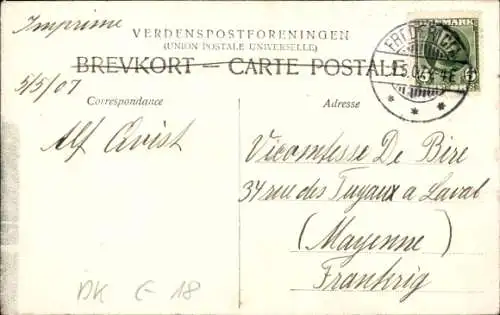 Imprimé
VERDENSPOSTFORENINGEN
(UNION POSTALE UNIVERSELLE)
BREVKORT - CARTE POSTALE
DANMARK
FREDERICIA
5/5/07
Correspondance
Adresse
Alf Qvist
Vicomtesse De Bire
34 rue des Tuyaux a Laval
(Mayenne)
Frankrig
DK
18